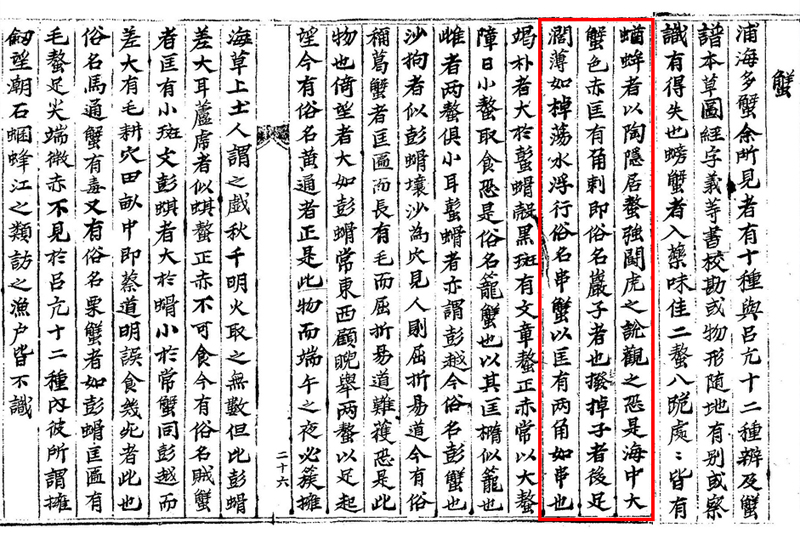 蟹
浦海多蟹余所見者有十種與呂亢十二種辨及蟹
譜本草圖經字義等書校勘或物形隨地有別或察
識有得失也螃蟹者入藥味佳二螯八跪處〻皆有
蝤蛑者以陶隱居螯強鬪虎之說觀之恐是海中大
蟹色赤匡有角刺即俗名巖子者也撥掉子者後足
濶薄如棹蕩水浮行俗名串蟹以匡有两角如串也
竭朴者大於蟛螖殼黑斑有文章螯正赤常以大螯
障日小螯取食恐是俗名籠蟹也以其匡楕似籠也
雌者两螯俱小耳蟛螖者亦謂彭越今俗名彭蟹也
沙狗者似彭螖壤沙為穴見人則屈折易道今有俗
稱葛蟹者匡匾而長有毛而屈折易道難獲恐是此
物也倚望者大如彭螖常東西顧睨舉两螯以足起
望今有俗名黄通者正是此物而端午之夜必簇擁
二十六
海草上土人謂之戲秋千明火取之無數但此彭螖
差大耳蘆虎者似蜞螯正赤不可食今有俗名賊蟹
者匡有小斑文彭蜞者大於螖小於常蟹同彭越而
差大有毛耕穴田畝中即蔡道明誤食幾死者此也
俗名馬通蟹有毒又有俗名栗蟹者如彭螖匡匾有
毛螯足尖端微赤不見於呂亢十二種內彼所謂擁
劒望潮石蜠蜂江之類訪之漁户皆不識